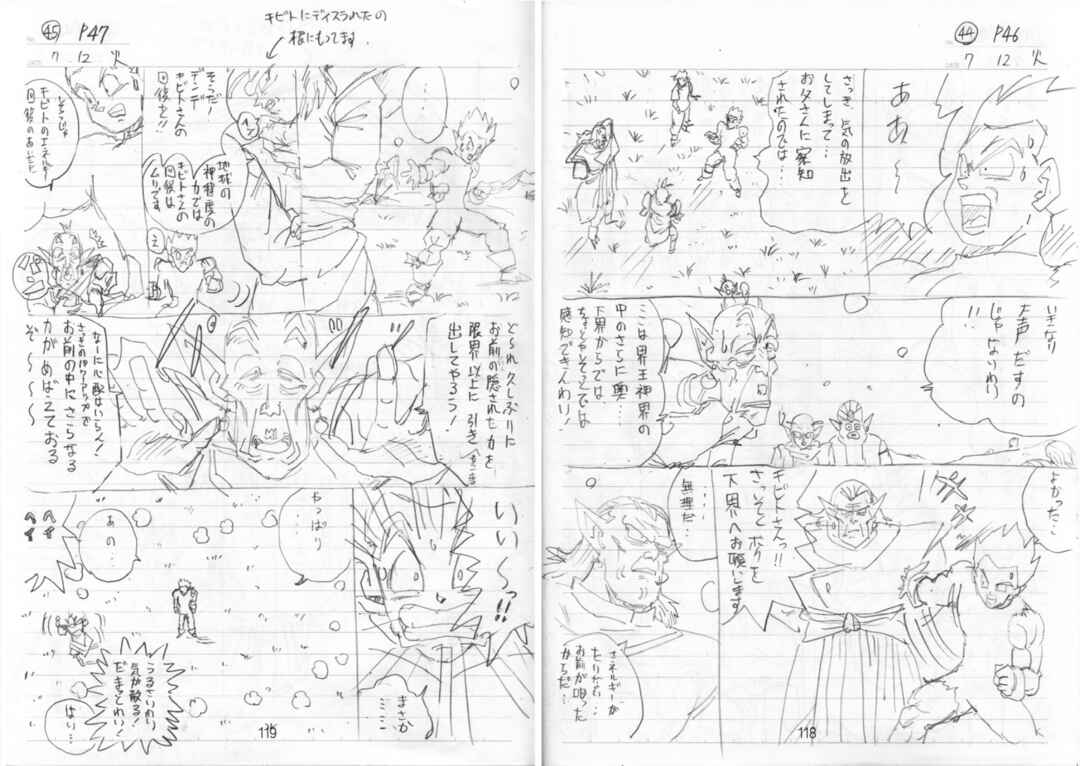 44 P46
7 12 火
ああ〜
さっき 気の放出を
してしまって…
お父さんに察知
されたのでは…
いきなり
大声だすの
じゃないわい
!!
ここは界王神界の
中のさらに奥…
下界からでは
感知できんわい!
よかった…
キビトさんっ!!
さっそく ボクを
下界へお願いします
……
無理だ…
エネルギーが
たりない…
お前が吸った
からだ…
118
45 P47
7 12 火
キビトにディスられたの
根にもってます.
…
そうだ
デンデ
キビトさんの
回復を!!
地球の
神程度の
チカラでは
キビトさんの
回復は
ムリです
え
キビトのエネルギー
回復のあいだ
ど〜れ久しぶりに
お前の隠された力を
限界以上に引き
出してやるっ!
なーに心配はいらん!
さっきのパワーアップで
お前の中にさらなる
力がめばえておる
ぞ〜〜〜
いい〜っ!!
まさか
……
やっぱり
…
あの…
うるさいわい
気が散る!
だまっとれい!
はい…
119